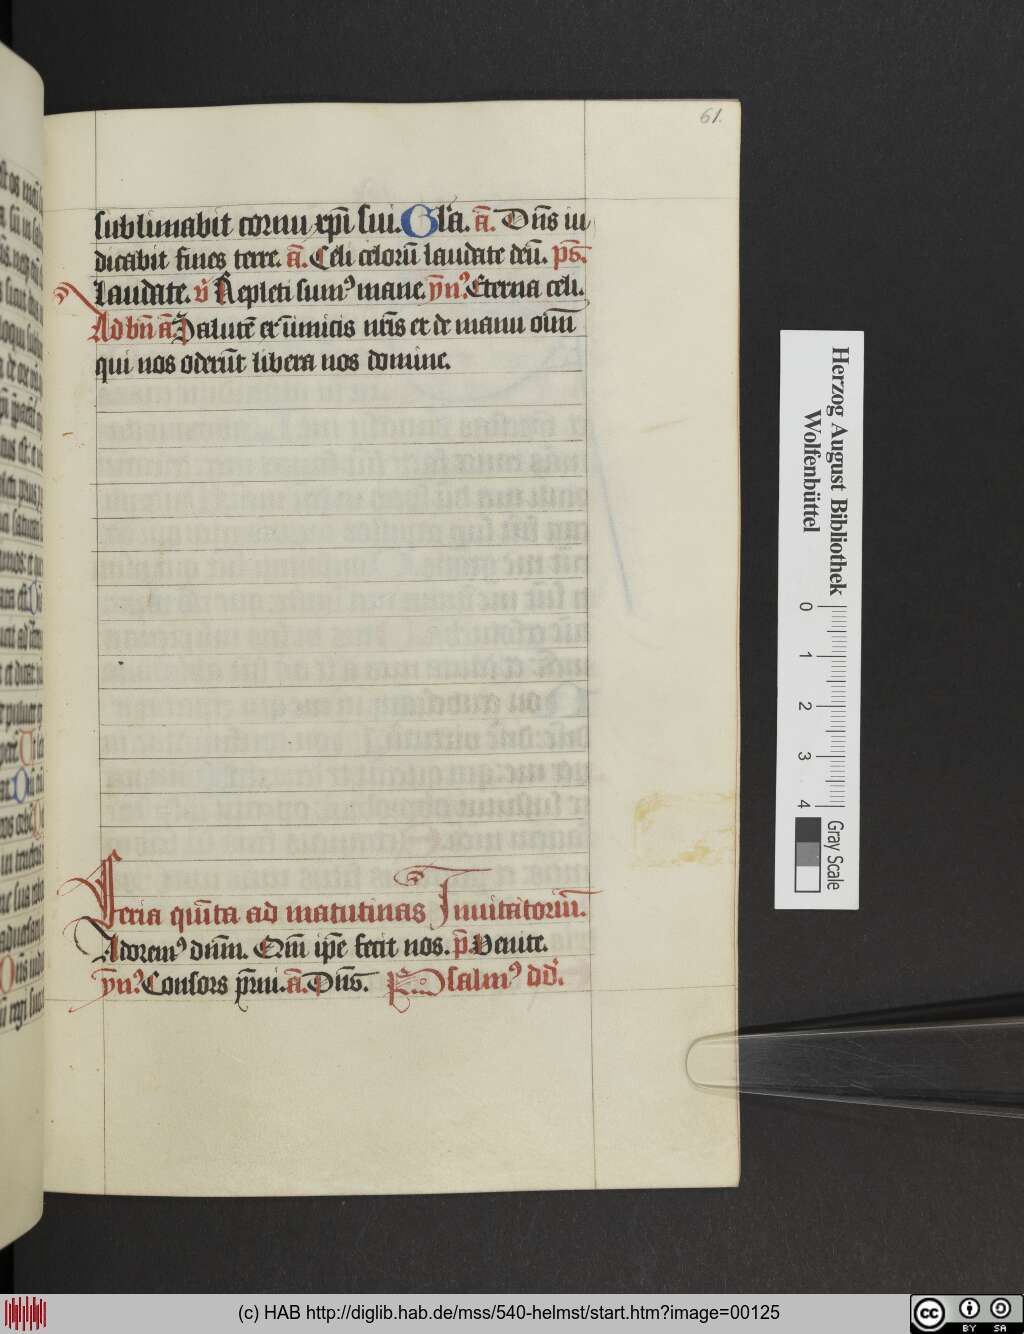 61.
sublimabit cornu xpī sui. Gl'a. ā. Dn̄s iu
dicabit fines terre. ā. Celi celorū laudate deū. ps̄.
Laudate. v̄ Repleti sumꝰ mane. yn̄ꝰ. Eterna celi.
Ad bn̄ ā Salutē ex inimicis nr̄is et de manu oīm
qui nos oderūt libera nos domine.
Feria quīta ad matutinas Inuitatoriū.
Adoremꝰ dn̄m. Qm̄ ip̄e fecit nos. p̄. Venite.
yn̄ꝰ. Consors p̄rni. ā. Dn̄s. Psalmꝰ dd̄.
Herzog August Bibliothek
Wolfenbüttel
0 1 2 3 4
Gray Scale
(c) HAB http://diglib.hab.de/mss/540-helmst/start.htm?image=00125
cc BY SA